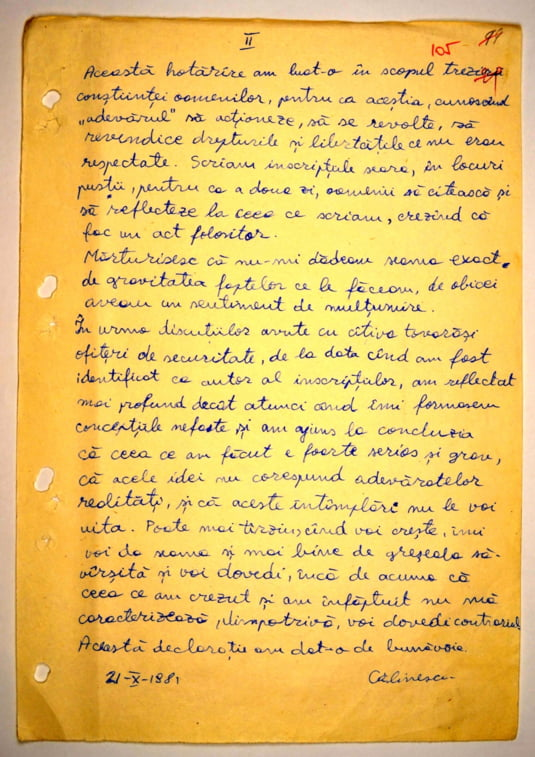 II
105
Această hotărîre am luat-o în scopul trezirii
conștiinței oamenilor, pentru ca aceștia, cunoscînd
„adevărul" să acționeze, să se revolte, să
revendice drepturile și libertățile ce nu erau
respectate. Scriam inscripțiile seara, în locuri
pustii, pentru ca a doua zi, oamenii să citească și
să reflecteze la ceea ce scriam, crezînd că
fac un act folositor.
Mărturisesc că nu-mi dădeam seama exact
de gravitatea faptelor ce le făceam, de obicei
aveam un sentiment de mulțumire.
În urma discuțiilor avute cu cîțiva tovarăși
ofițeri de securitate, de la data cînd am fost
identificat ca autor al inscripțiilor, am reflectat
mai profund decât atunci cand îmi formasem
concepțiile nefaste și am ajuns la concluzia
că ceea ce am făcut e foarte serios și grav,
că acele idei nu corespund adevăratelor
realități, și că aceste întîmplări nu le voi
uita. Poate mai tîrziu, cînd voi crește, îmi
voi da seama și mai bine de greșeala să-
vîrșită și voi dovedi, încă de acuma că
ceea ce am crezut și am înfăptuit nu mă
caracterizează, dimpotrivă, voi dovedi contrariul
Această declarație am dat-o de bunăvoie.
21-X-1981 Călinescu